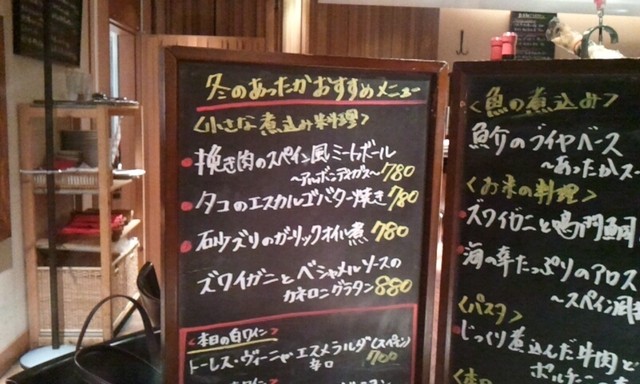 冬のあったかおすすめメニュー
<小さな煮込み料理>
挽き肉のスペイン風ミートボール
~アルボンディガス~ 780
タコのエスカルゴバター焼き 780
砂ズリのガーリックオイル煮 780
ズワイガニとベシャメルソースの
カネロニグラタン 880
<本日の白ワイン>
トーレス・ヴィーニャ エスメラルダ(スペイン)
辛口 700
<魚の煮込み>
魚介のブイヤベース
~あったかス
<お米の料理>
ズワイガニと鳴門鯛
海の幸たっぷりのアロス
~スペイン風
<パスタ>
じっくり煮込んだ牛肉と